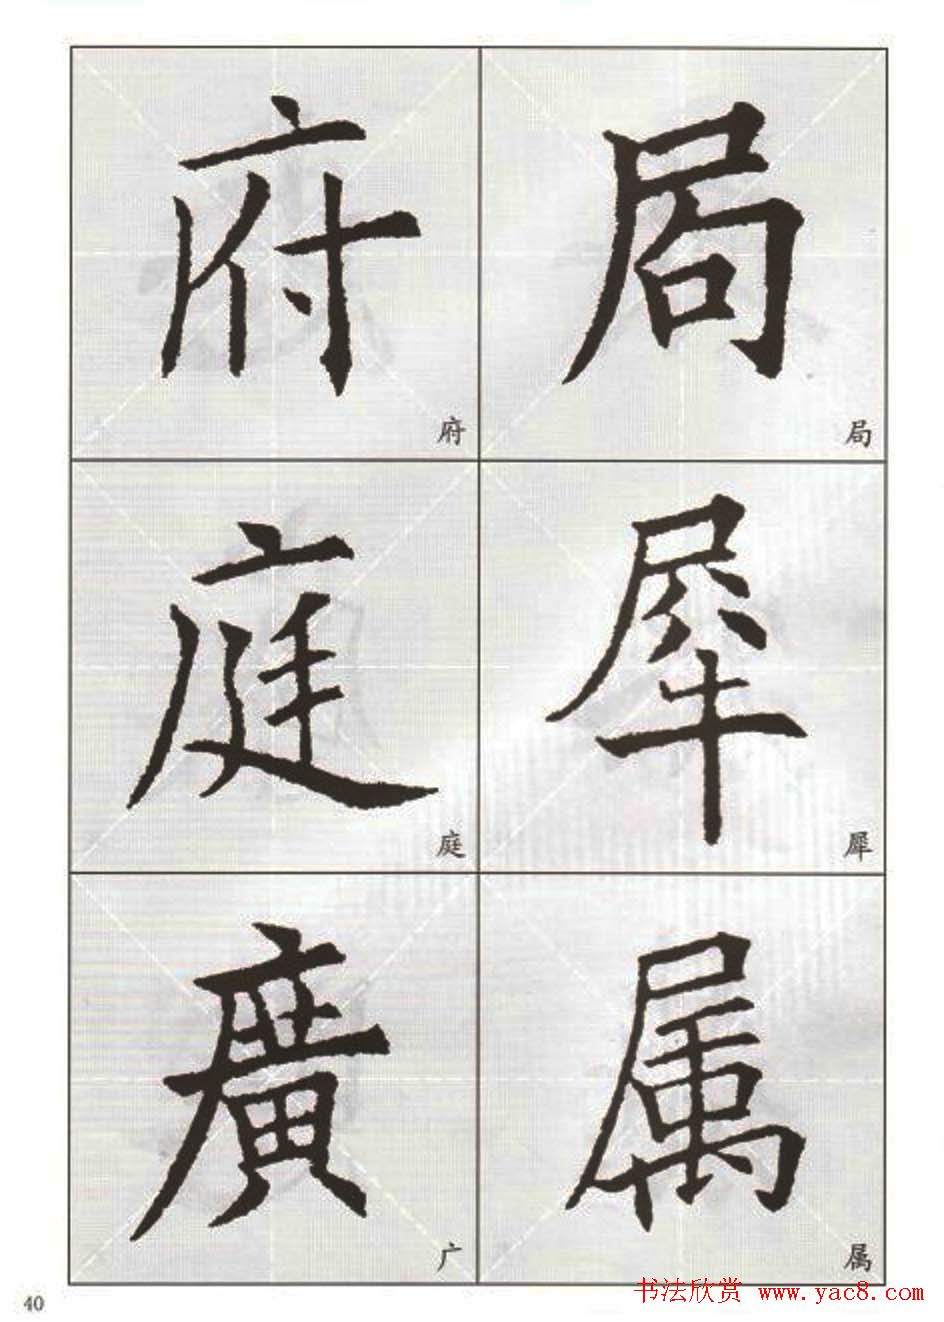 府 局
府 局
庭 犀
庭 犀
廣 属
广 属
40
书法欣赏 www.yac8.com